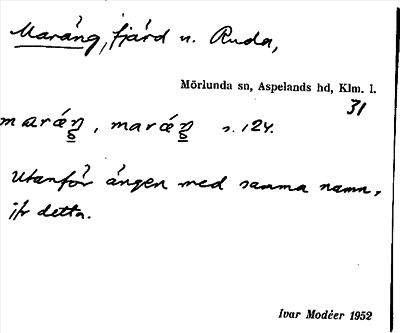 Maräng, fjärd n. Ruda,
Mörlunda sn, Aspelands hd, Klm. l.
31
s. 124.
Utanför ängen med samma namn,
jfr detta.
Ivar Modéer 1952